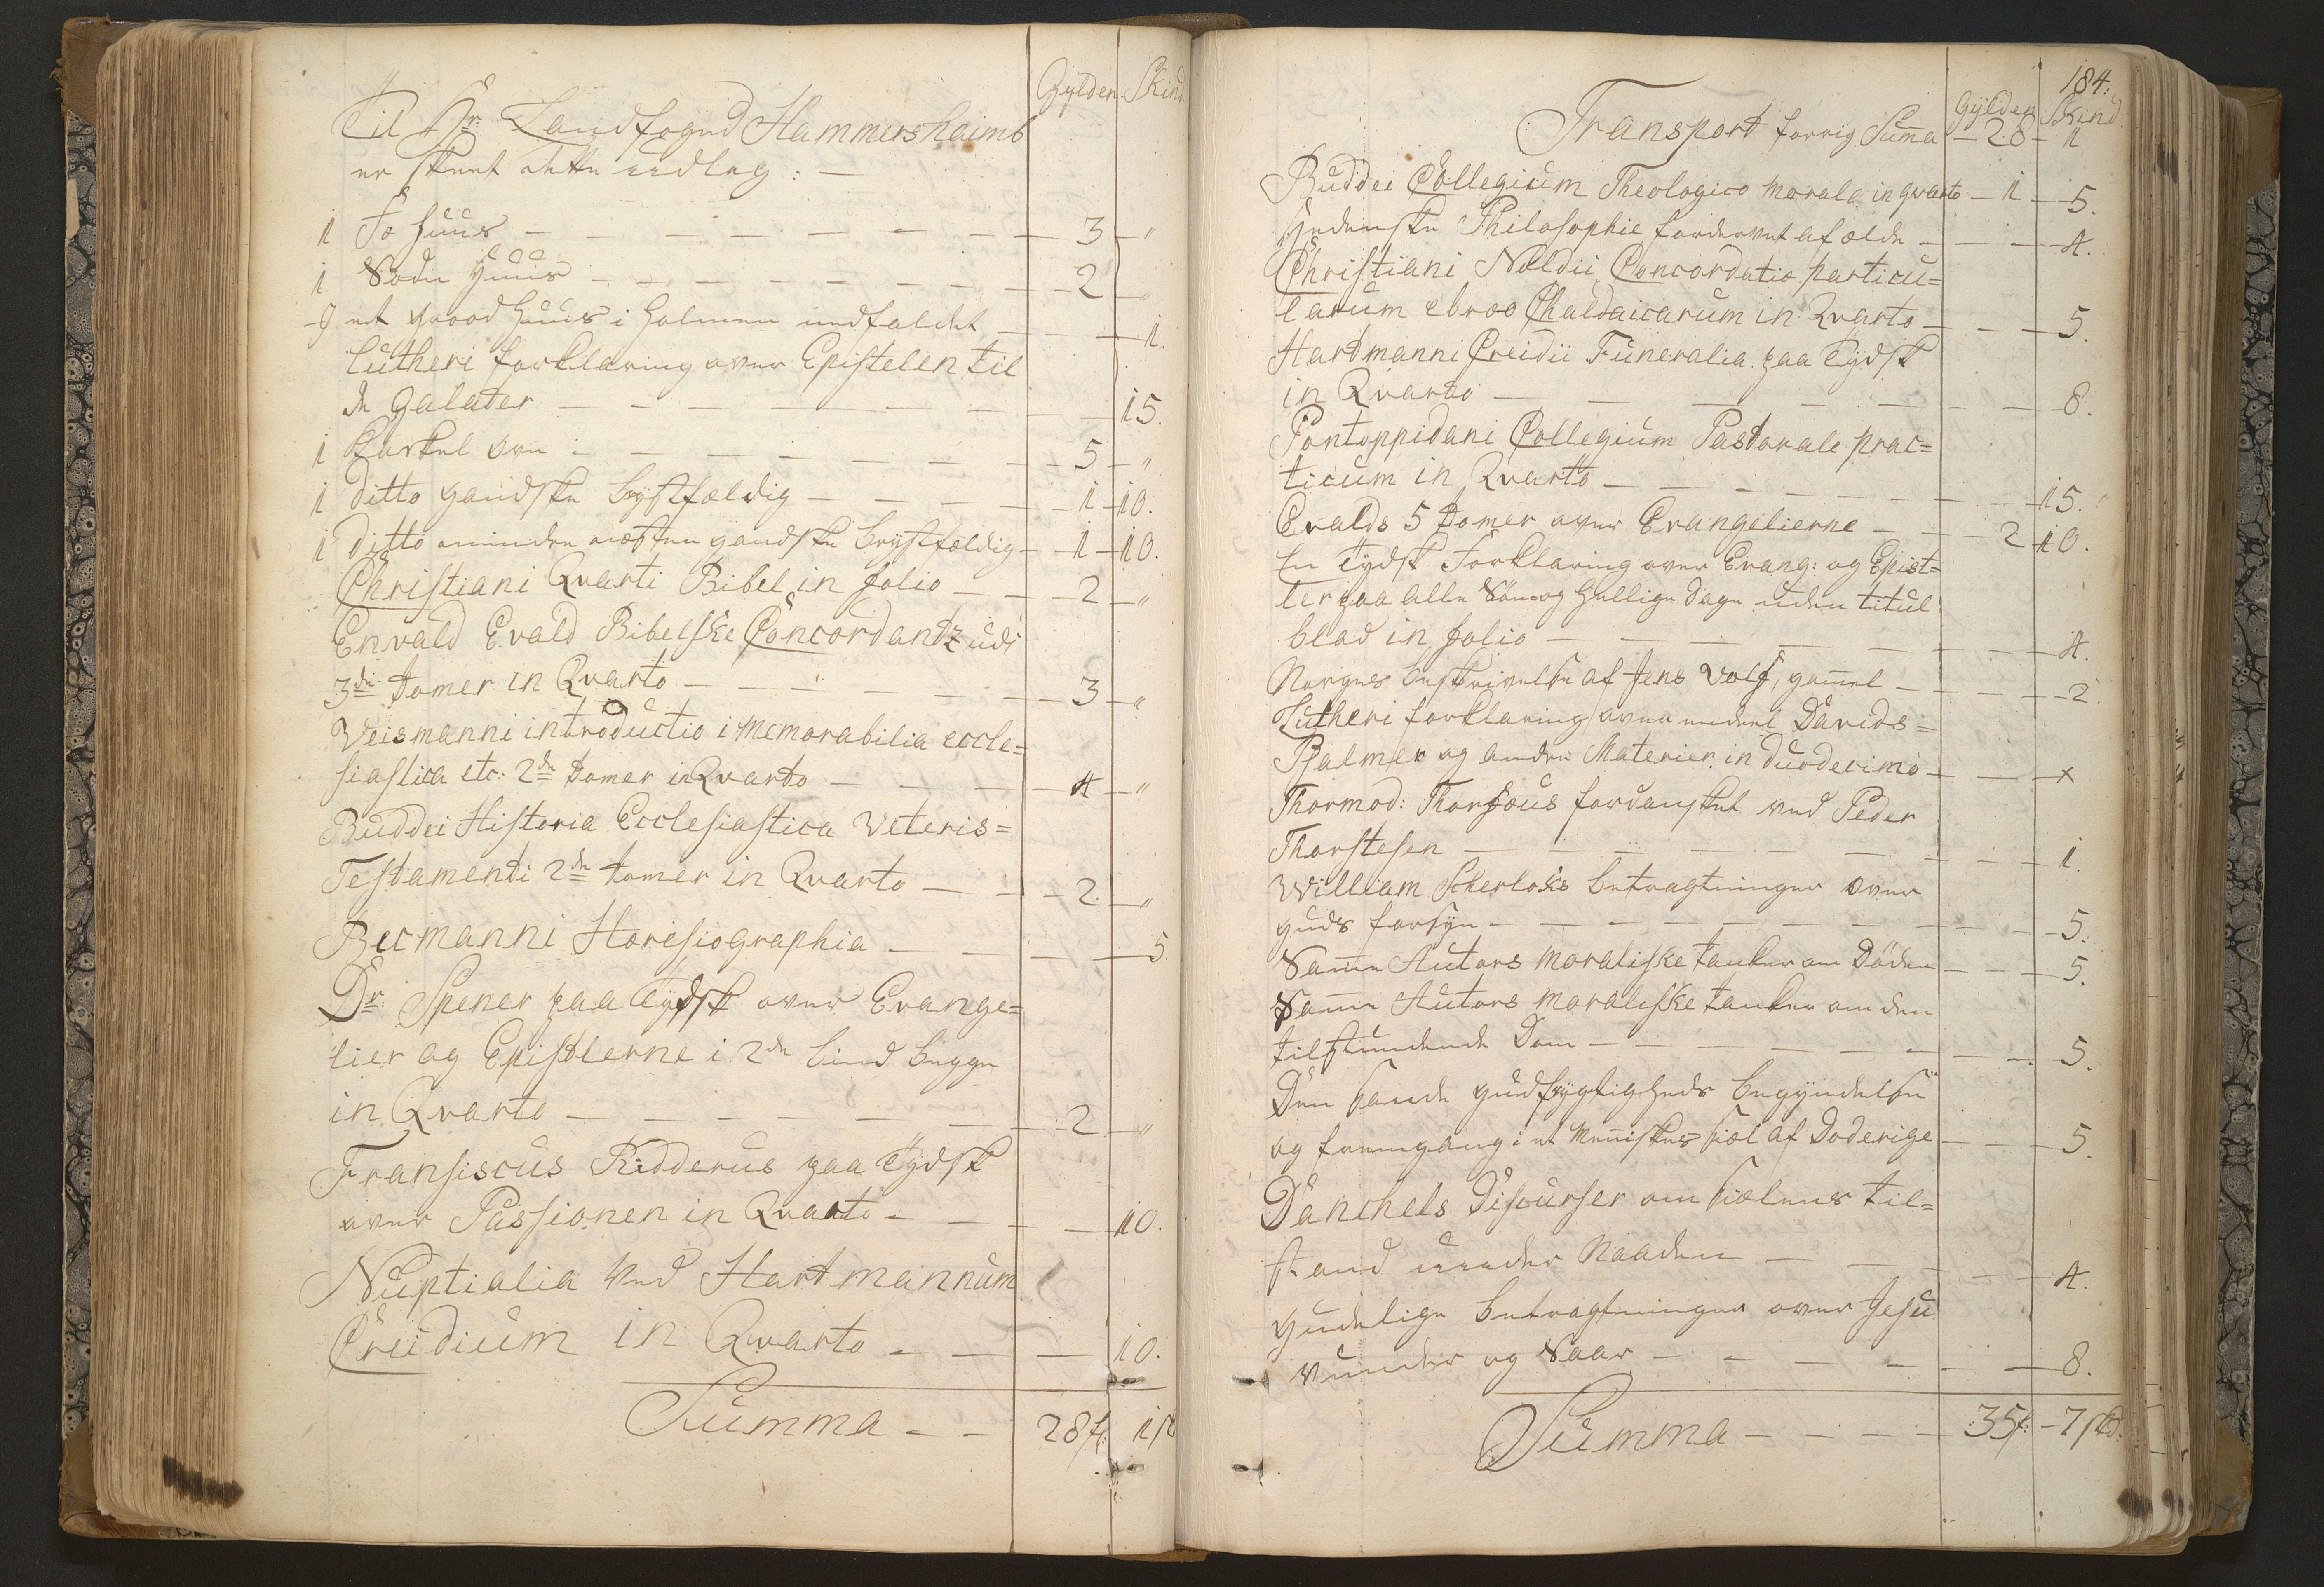 Gylden Skind
Til Hr. Landfogud Hammershaimb
er skeet dette udlag: —
1 Fæ Huus — 3 — "
1 Node Huus — 2 — "
et Hood Huus i Holmen nedfaldet — 1.
Lutheri forklaring over Epistelen til
de Galater — 15.
1 Karkel ovn — 5 — "
1 ditto gandske bøstfældig — 1 — 10.
1 ditto mindre næsten gandske brystfældig — 1 — 10.
Christiani Qvarti Bibel in folio — 2 — "
Envald Evald Bibelske Concordantz udi
3de Tomer in Qvarto — 3 — "
Veismanni introductio i Memorabilia eccle=
siastica etc: 2de Tomer in Qvarto — 4 — "
Buddei Historia Ecclesiastica Veteris=
Testamenti 2de tomer in Qvarto — 2. — "
Becmanni Hæresiographia — 5.
Dr. Spener paa Tydsk over Evange=
lier og Epistlerne i 2de bind begge
in Qvarto — 2 — "
Fransiscus Ridderus paa Tydsk
over Passionen in Qvarto — 10.
Nuptialia ved Hartmannum
Creidium in Qvarto — 10.
Summa — 28 f: 1 s
184.
Gylden Skind
Transport forrig Suma — 28 — 1
Buddei Collegium Theologico morale in qvarto — 1 — 5.
Hedenske Philosophie fordervet af ælde — 4.
Christiani Noldii Concordatiæ particu=
larum ebræo Chaldaicarum in Qvarto — 5.
Hartmanni Creidii Funeralia paa Tydsk
in Qvarto — 8.
Pontoppidani Collegium Pastorale prac=
ticum in Qvarto — 15.
Evalds 5 Tomer over Evangelierne — 2 10.
En Tydsk Forklaring over Evang: og Epist=
ler paa alle Søn og Hellige Dage uden titul
blad in folio — 4.
Norges beskrivelse af Jens Volf, gamel — 2.
Lutheri forklaring over endeel Davids=
Psalmer og andre Materier in duodecimo — x
Thormod: Thorfæus fordansket ved Peder
Thorstesen — 1.
William Scherloks betragtninger over
Guds forsyn — 5.
Same Autors moraliske tanker om Døden — 5.
Same Autors moraliske tanker om den
tilstundende Dom — 5.
Den sande gudfrygtigheds begyndelse
og fremgang i et Meniskes siæl af Doderige — 5.
Danchels Discurser om siælens til=
stand under Naaden — 4.
Gudelige betragtninger over Jesu
vunder og Saar — 8.
Summa — 35 f: — 7 skd.